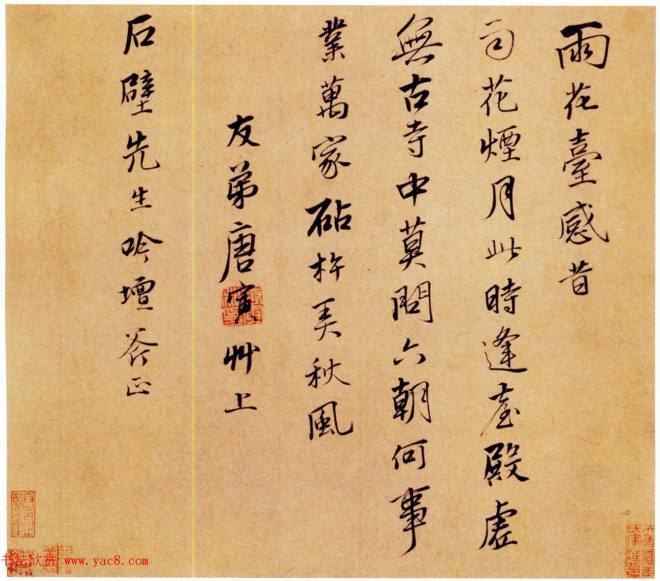 雨花臺感昔
花煙月此時逢臺殿虛
無古寺中莫問六朝何事
業萬家砧杵秋風
友弟唐寅艸上
石壁先生吟壇斧正
书法欣赏 www.yac8.com